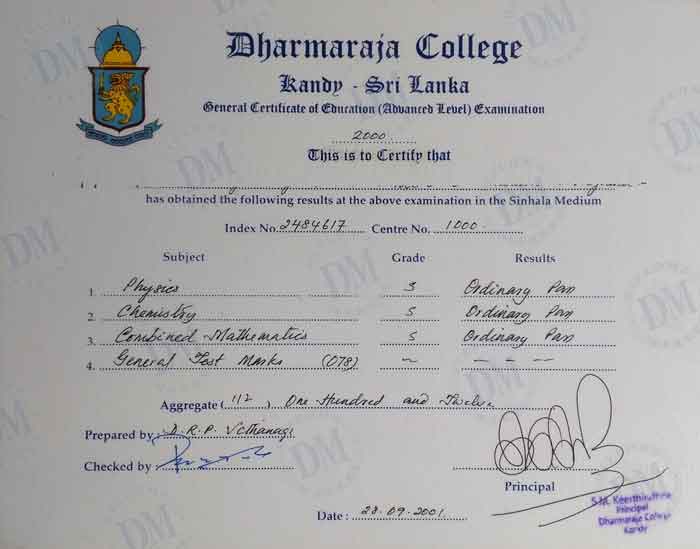 Dharmaraja College
Kandy - Sri Lanka
General Certificate of Education (Advanced Level) Examination
2000
This is to Certify that
has obtained the following results at the above examination in the Sinhala Medium
Index No. 2484617 Centre No. 1000
Subject Grade Results
1. Physics S Ordinary Pass
2. Chemistry S Ordinary Pass
3. Combined Mathematics S Ordinary Pass
4. General Test Marks (078) ~ - - -
Aggregate (112) One Hundred and Twelve
Prepared by D. R. P. Vithanagi
Checked by
Principal
S.M. Keerthirathne
Principal
Dharmaraja College
Kandy
Date : 28.09.2001
DM